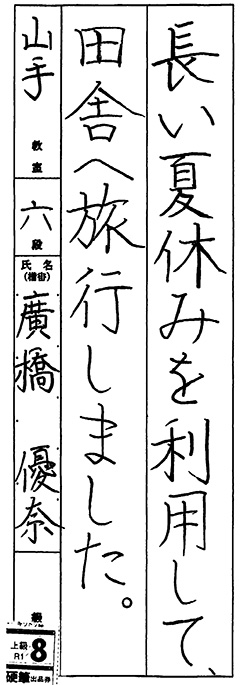 長い夏休みを利用して、
田舎へ旅行しました。
山手教室
六段
氏名
(楷書)
廣橋 優奈
級
上級
R1
8
硬筆出品券